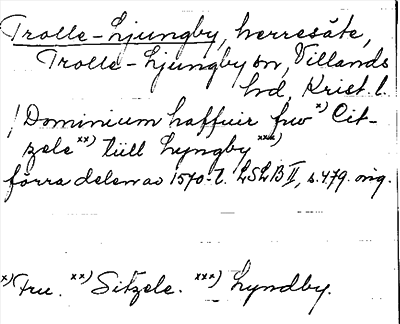 Trolle-Ljungby, herresäte,
Trolle-Ljungby sn, Villands
hd, Krist. l.
/ Dominium haffuir frw x) Cit-
zele xx) tiill Lyngby xxx)
förra delen av 1570-t. LSLB II, s. 479. orig.
x) Fru. xx) Sitzele. xxx) Lyndby.